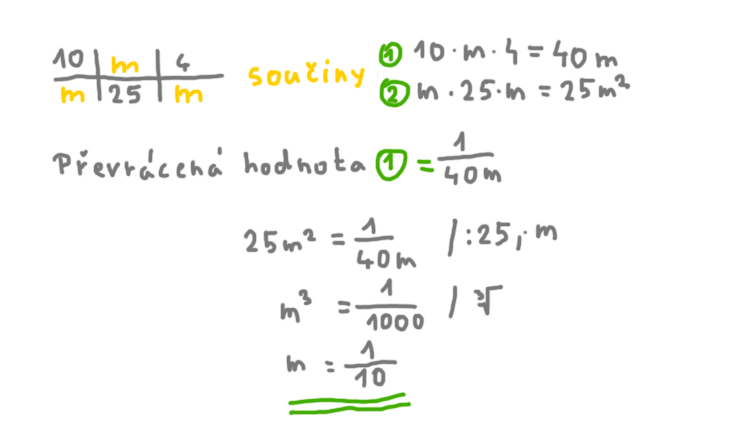 10 | m | 4
m | 25 | m
součiny
① 10 · m · 4 = 40 m
② m · 25 · m = 25 m²
Převrácená hodnota ① = 1/40m
25m² = 1/40m /:25, · m
m³ = 1/1000 / ∛
m = 1/10